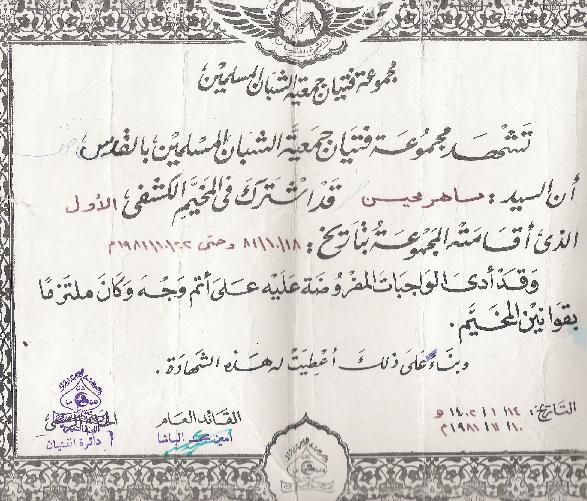 مجموعة فتيان جمعية الشبان المسلمين
تشهد مجموعة فتيان جمعية الشبان المسلمين بالقدس
أن السيد : ماهر محيسن قد اشترك في المخيم الكشفي الأول
الذي أقامته المجموعة بتاريخ : ٨١/١٠/١٨ وحتى ١٩٨١/١٠/٢٢م
وقد أدى الواجبات المفروضة عليه على أتم وجه وكان ملتزما
بقوانين المخيم .
وبناء على ذلك أعطيت له هذه الشهادة .
التاريخ : ١٤٠٢/١/١٤ هـ
١٩٨١/١١/١٠م
القائد العام
أمين الباشا
دائرة الفتيان